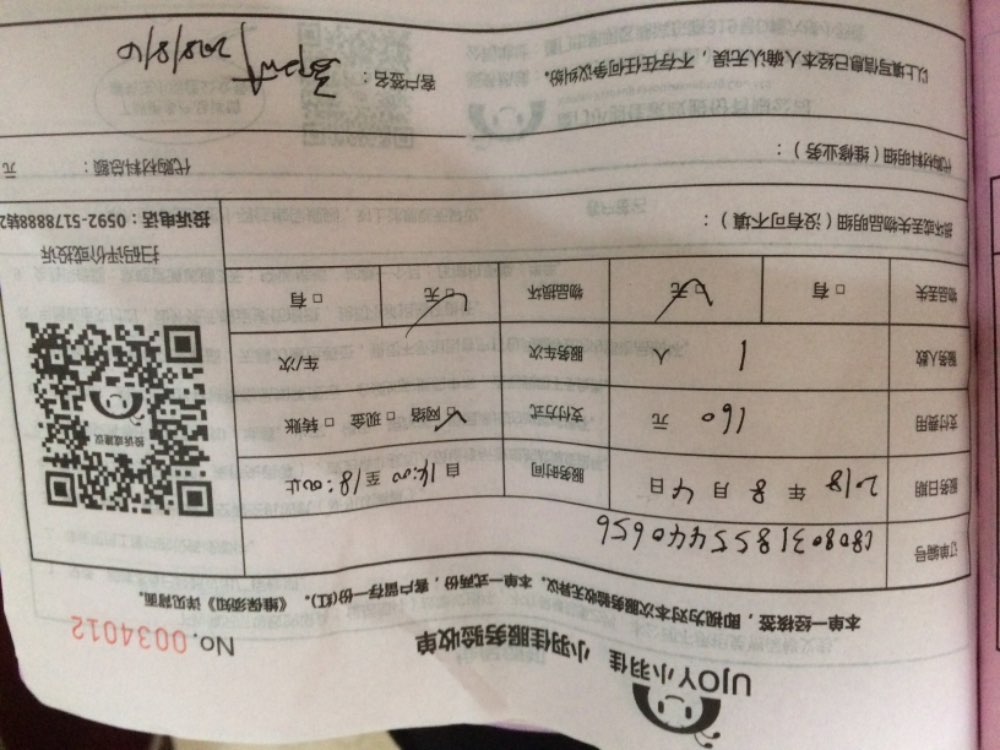 UJOY小羽佳 小羽佳服务验收单
No. 0034012
本单一经核签，即视为对本次服务验收无异议。本单一式两份，客户留存一份(红)。《维保须知》详见背面。
订单编号
服务日期 2018 年 8 月 4 日 服务时间 自 14:00 至 18:00 止
支付费用 160 元 支付方式 □ 网络 □ 现金 □ 转账
服务人数 1 人 服务车次 车/次
物品丢失 □ 有 □ 无 物品损坏 □ 无 □ 有
投诉或建议
扫码评价或投诉
投诉电话：0592-5178888转2
损坏或丢失物品明细（没有可不填）：
代购材料明细（维修业务）： 代购材料总额： 元
以上填写信息已经本人确认无误，不存在任何争议纠纷。 客户签名： 2018/8/6